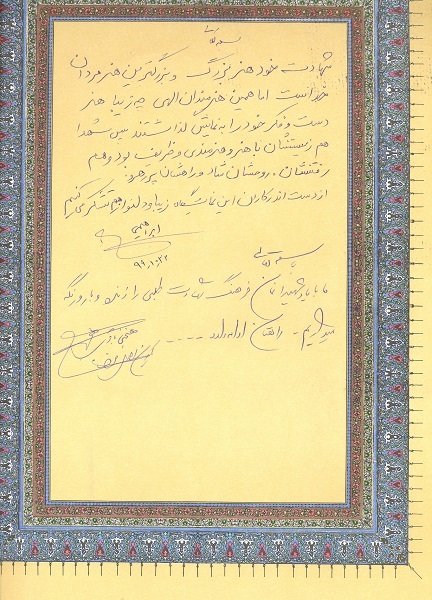 بسمه تعالی
شهادت خود هنر بزرگ و بزرگترین هنر مردان
خداست اما همین هنرمندان الهی چه زیبا هنر
دست و فکر خود را به نمایش گذاشتند پس شهدا
هم زیستنشان با هنر و هنرمندی و ظریف بود و هم
رفتنشان. روحشان شاد و راهشان پر رهرو.
از دست اندرکاران این نمایشگاه زیبا و دلنواز هم تشکر می کنیم
ابراهیمی
۹۹,۱۰,۲۲
بسمه تعالی
ما با یاد شهیدانمان فرهنگ شهادت طلبی را زنده و باروز نگه
میداریم - راهتان ادامه دارد -----